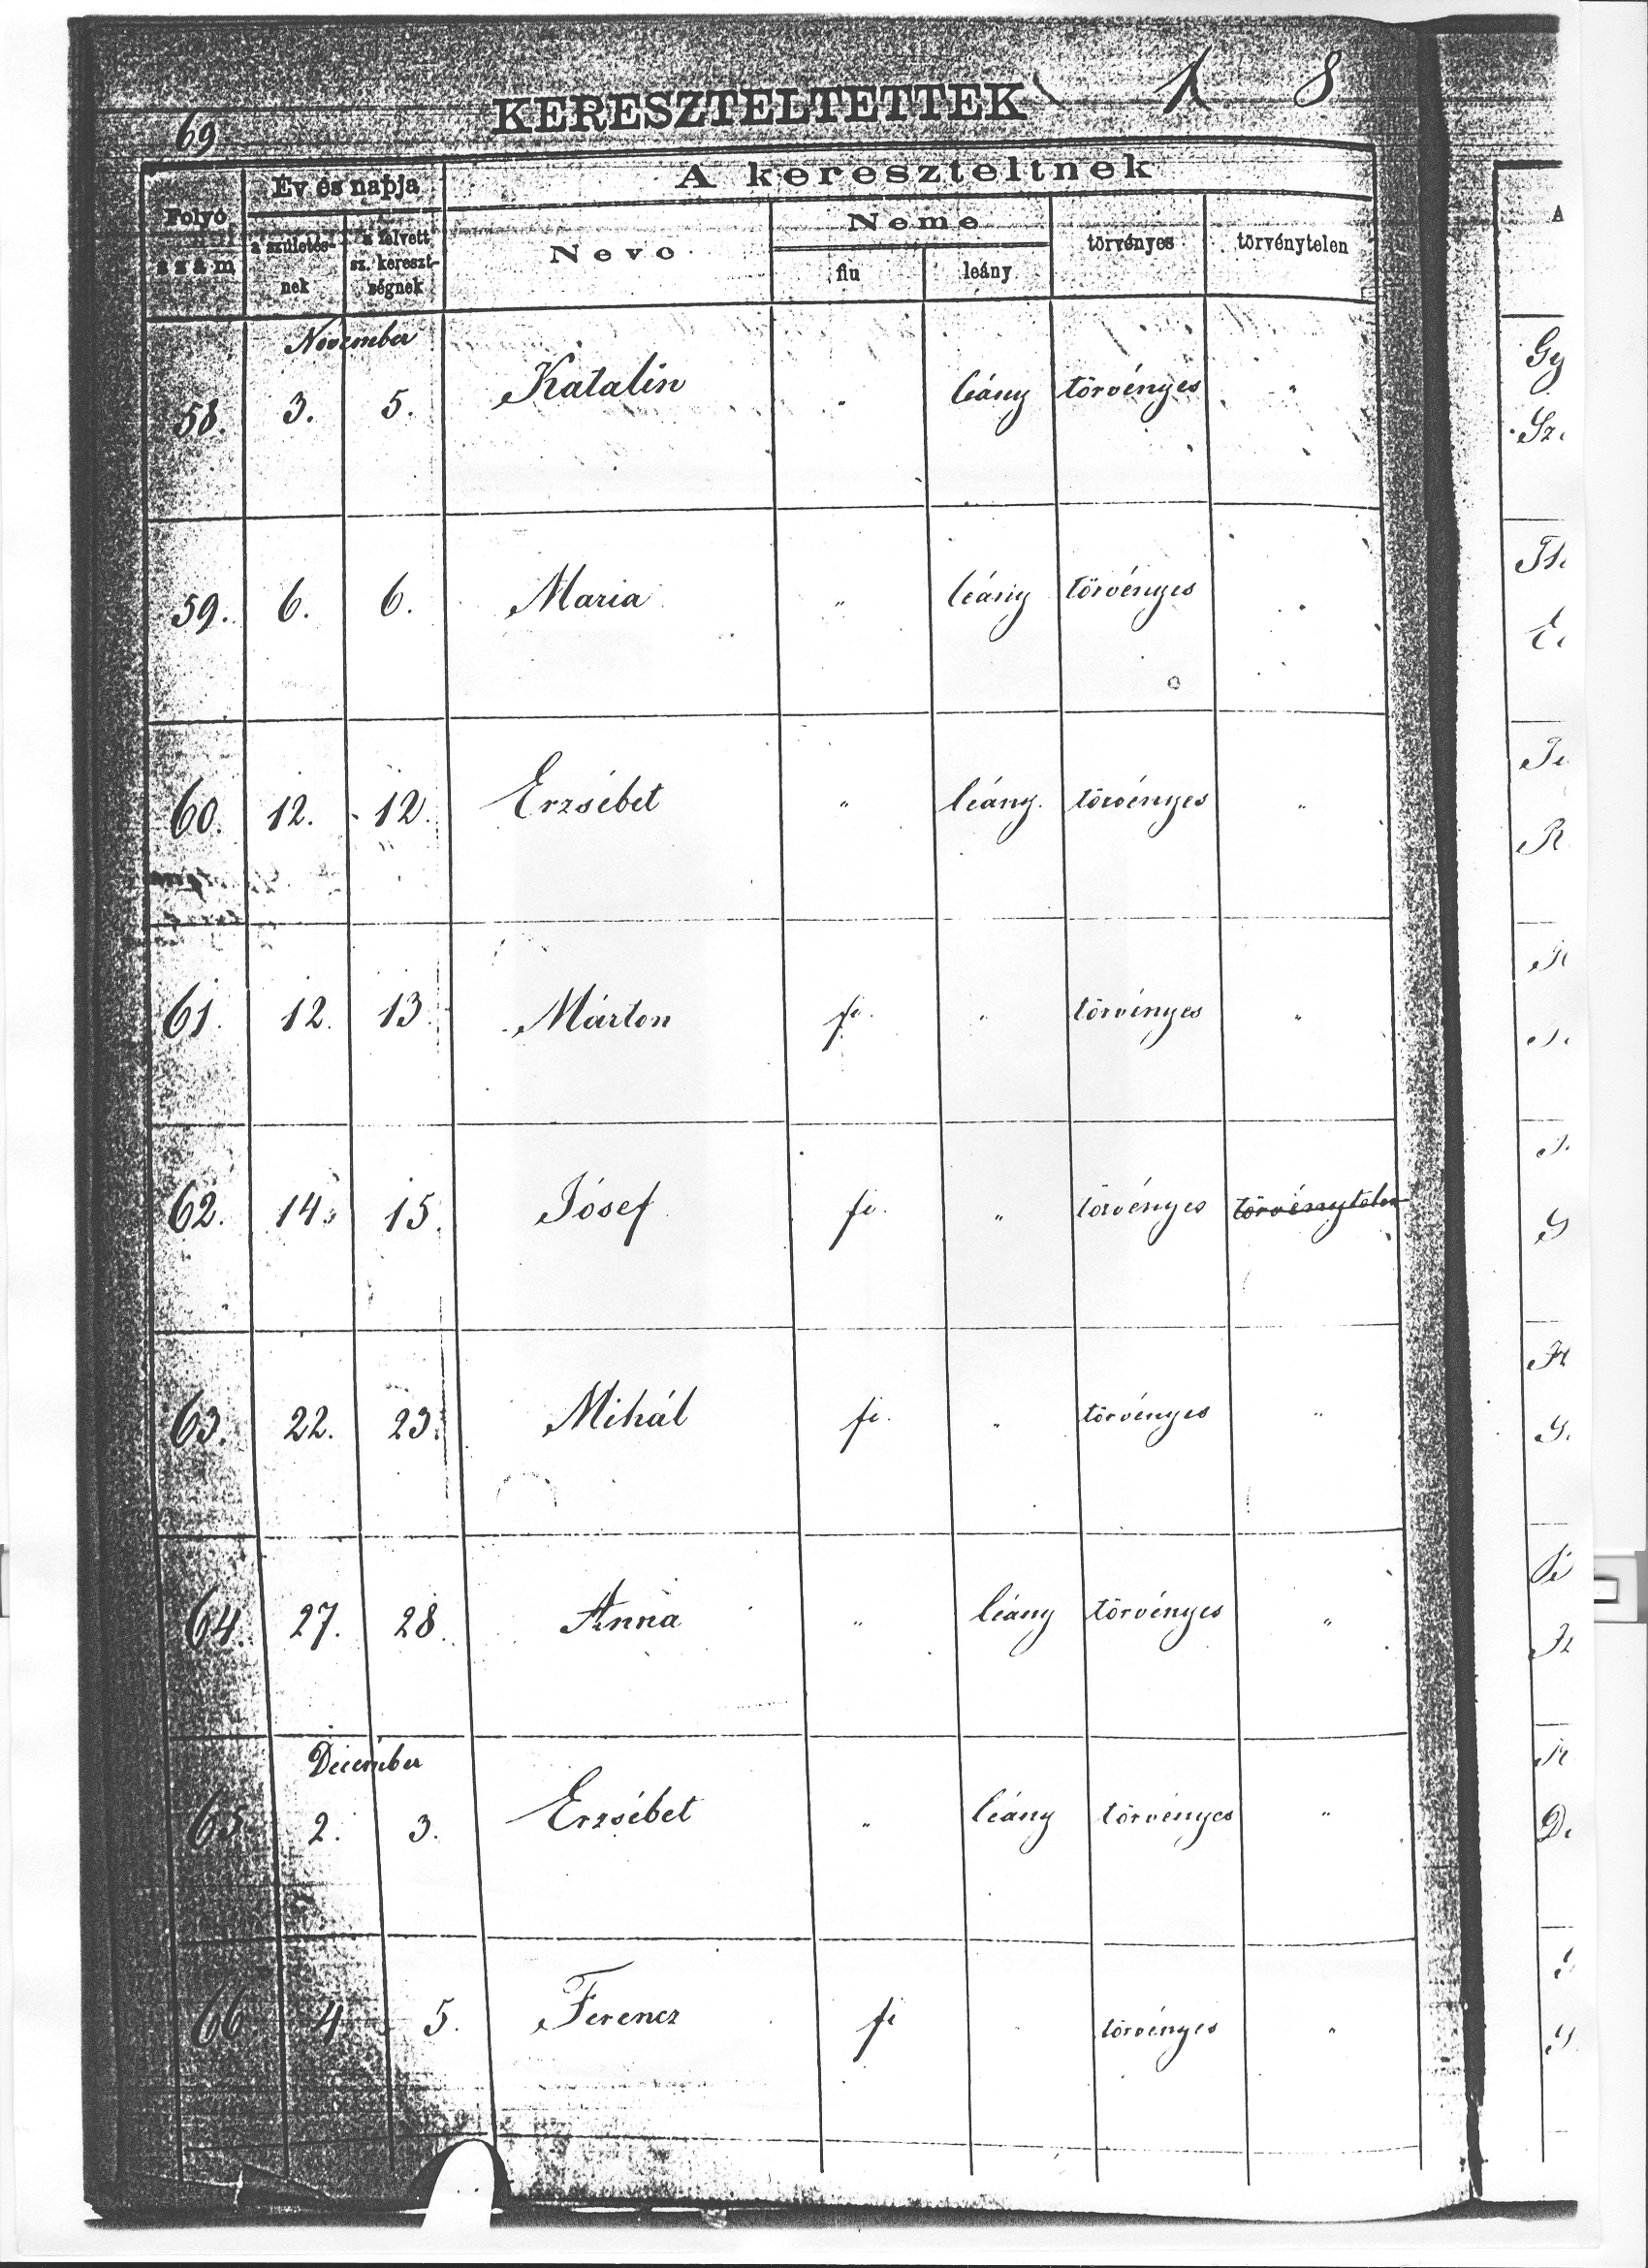 KERESZTELTETTEK 1 8
69
Ev és napja A kereszteltnek
Folyó szám a születés-nek a felvett sz. kereszt-ségnek Neve Neme fiu leány törvényes törvénytelen
November
58. 3. 5. Katalin " leány törvényes "
59. 6. 6. Maria " leány törvényes "
60. 12. 12. Erzsébet " leány. törvényes "
61. 12. 13. Márton fi. " törvényes "
62. 14. 15. Jósef fi. " törvényes törvénytelen
63. 22. 23. Mihál fi. " törvényes "
64. 27. 28. Anna " leány törvényes "
December
65 2. 3. Erzsébet " leány törvényes "
66 4 5. Ferencz fi " törvényes "